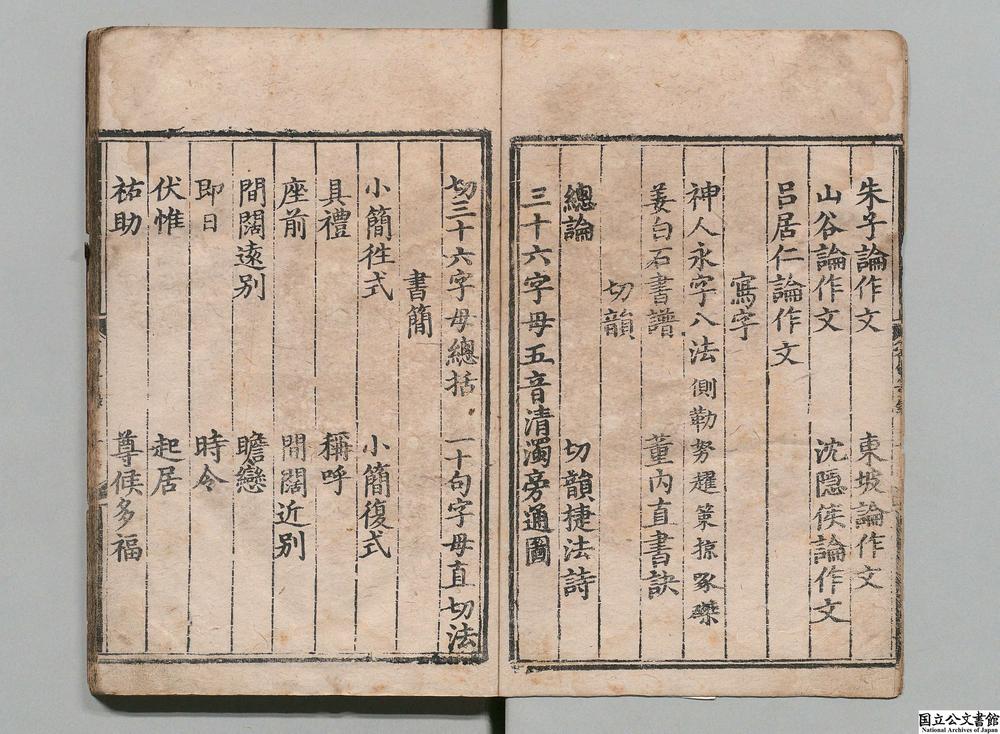 朱子論作文　東坡論作文
山谷論作文　沈隱侯論作文
呂居仁論作文
寫字
神人永字八法　側勒努趯策掠啄磔
姜白石書譜　董内直書訣
切韻
總論　切韻捷法詩
三十六字母五音清濁旁通圖
切三十六字母總括　一十句字母直切法
書簡
小簡徃式　小簡復式
具禮　稱呼
座前　間闊近別
間闊遠別　瞻戀
即日　時令
伏惟　起居
祐助　尊候多福
国立公文書館
National Archives of Japan